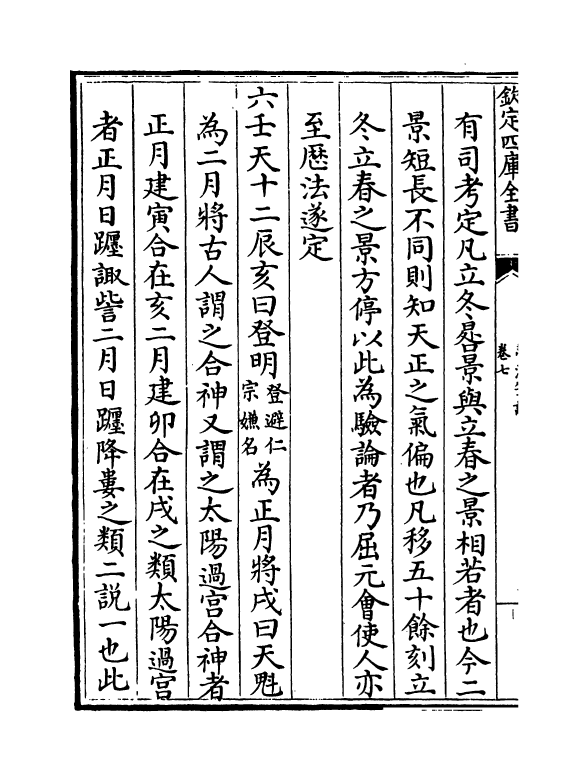 欽定四庫全書
卷七
有司考定凡立冬晷景與立春之景相若者也今二
景短長不同則知天正之氣偏也凡移五十餘刻立
冬立春之景方停以此為驗論者乃屈元會使人亦
至厯法遂定
六壬天十二辰亥曰登明登避仁宗嫌名為正月將戌曰天魁
為二月將古人謂之合神又謂之太陽過宮合神者
正月建寅合在亥二月建卯合在戌之類太陽過宮
者正月日躔諏訾二月日躔降婁之類二説一也此